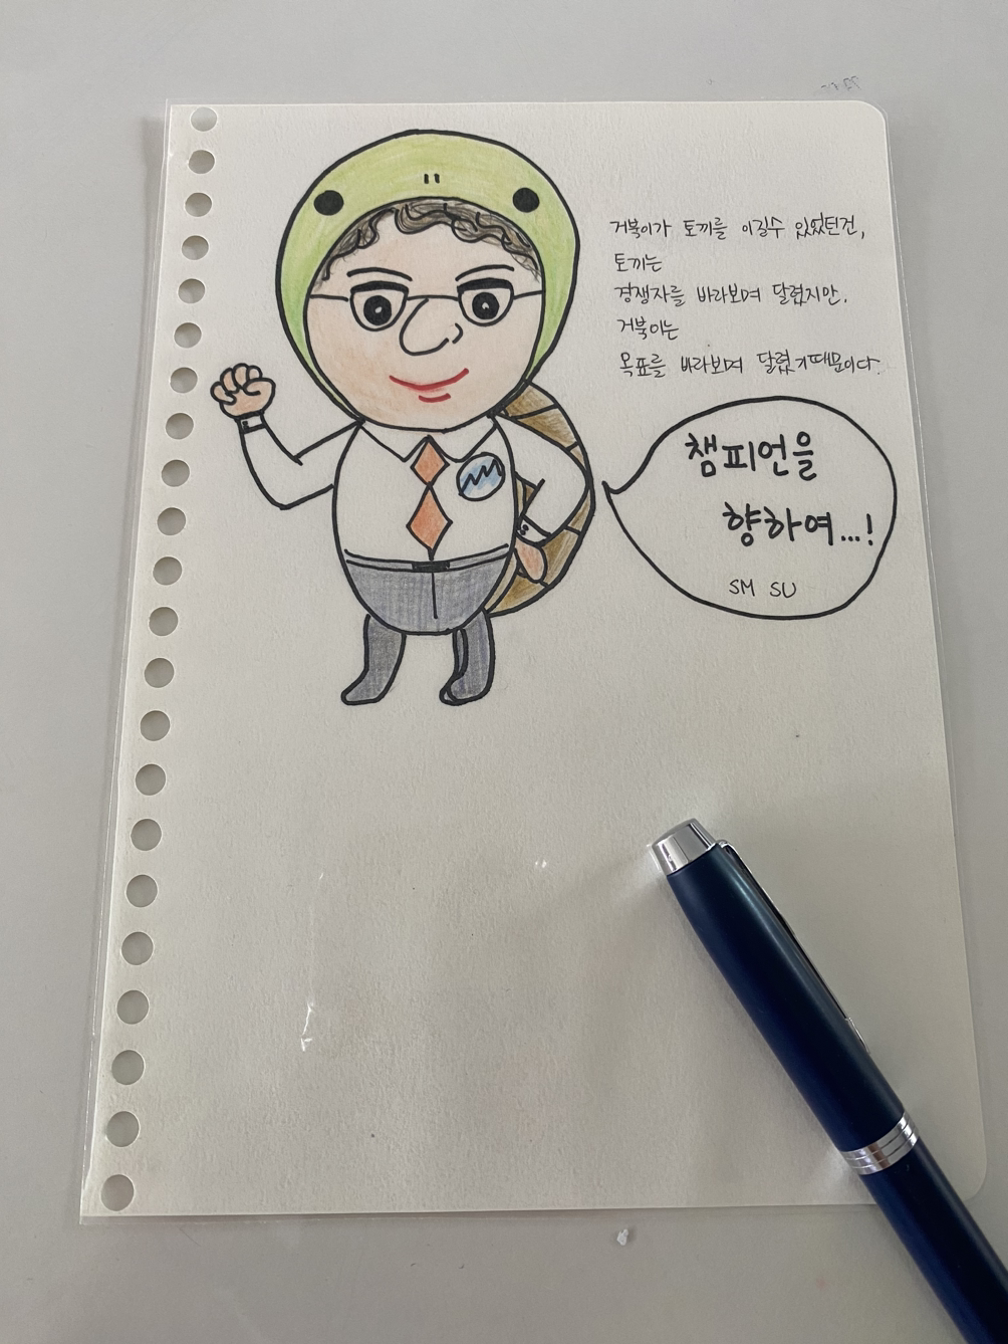 거북이가 토끼를 이길수 있었던건,
토끼는
경쟁자를 바라보며 달렸지만.
거북이는
목표를 바라보며 달렸기때문이다.
챔피언을
향하여...!
SM SU